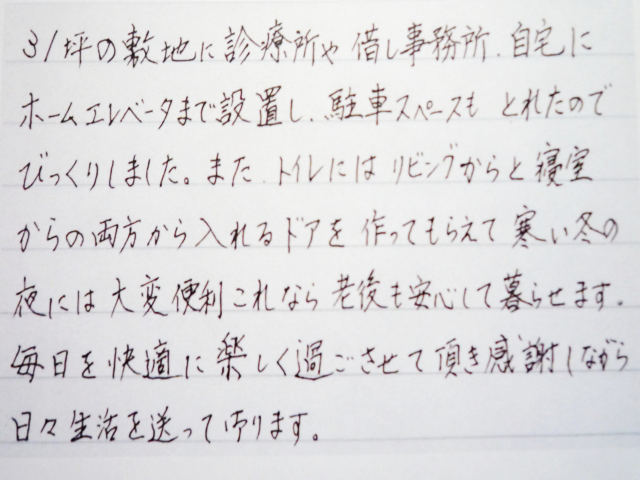 31坪の敷地に診療所や借し事務所、自宅に
ホームエレベータまで設置し、駐車スペースも とれたので
びっくりしました。また、トイレには リビングからと寝室
からの両方から入れるドアを 作ってもらえて 寒い冬の
夜には 大変便利これなら 老後も安心して暮らせます。
毎日を快適に楽しく過ごさせて頂き感謝しながら
日々生活を送って御ります。